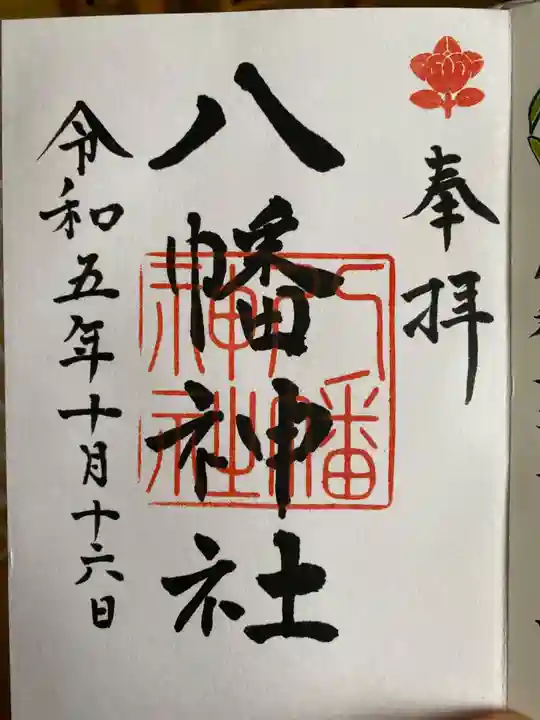 奉拝
八幡神社
八幡
神社
令和五年十月十六日